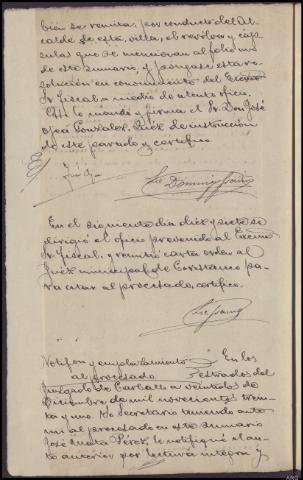 bién se remita, por conducto del Al-
calde de esta villa, el revólver y cáp-
sulas que se mencionan al folio uno
de este sumario, y póngase esta re-
solución en conocimiento del Excmo
Sr Fiscal a medio de atento oficio.
Así lo manda y firma el Sr. Don José
Ojea González, Juez de instrucción
de este partido y certifico
E/
José Ojea
Lic Domingo
En el siguiente día diez y siete se
dirigió el oficio prevenido al Excmo
Sr Fiscal, y remitió carta orden al
Juez municipal de Coristanco pa-
ra citar al procesado, certifico.
Lic
Notifon y emplazamiento En los
al procesado estrados del
Juzgado de Carballo a veintidos de
Diciembre de mil novecientos trein-
ta y uno. Yo Secretario teniendo ante
mi al procesado en este sumario
José Mata Pérez, le notifiqué el au-
to anterior por lectura íntegra y